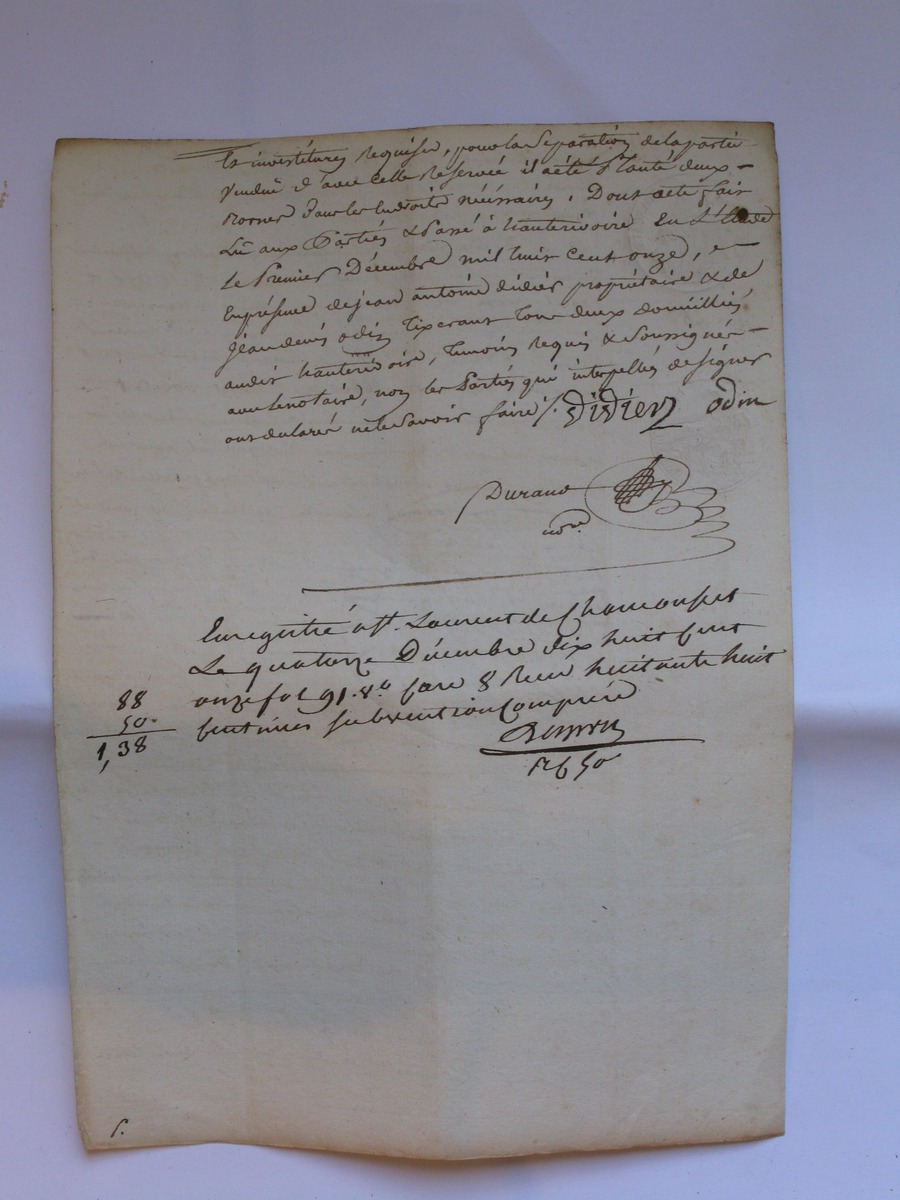 et investitures Requises, pour la Separation de la partie
Vendue d'avec celle Reservée il a été Planté deux
Bornes dans les Endroits néssaires. Dont acte fait
Lu aux Parties & Passé à hauterivoire En L'Etude
Le Premier Décembre mil huit cent onze, en
En présence de jean antoine didier propriétaire & de
jean denis odin Tixerant Tous deux domiciliés
audit hauterivoire, Témoins Requis & Soussignés
avec le notaire, non les Parties qui interpellés de Signer
ont déclaré ne le Savoir faire /. Didier odin
Durand
nore
Enregistré a St. Laurent de Chamousset
Le quatorze Décembre dix huit Cent
onze fol 91. Vo Case 8 Reçu huitante huit
Centimes subvention Comprise
88
50
1,38